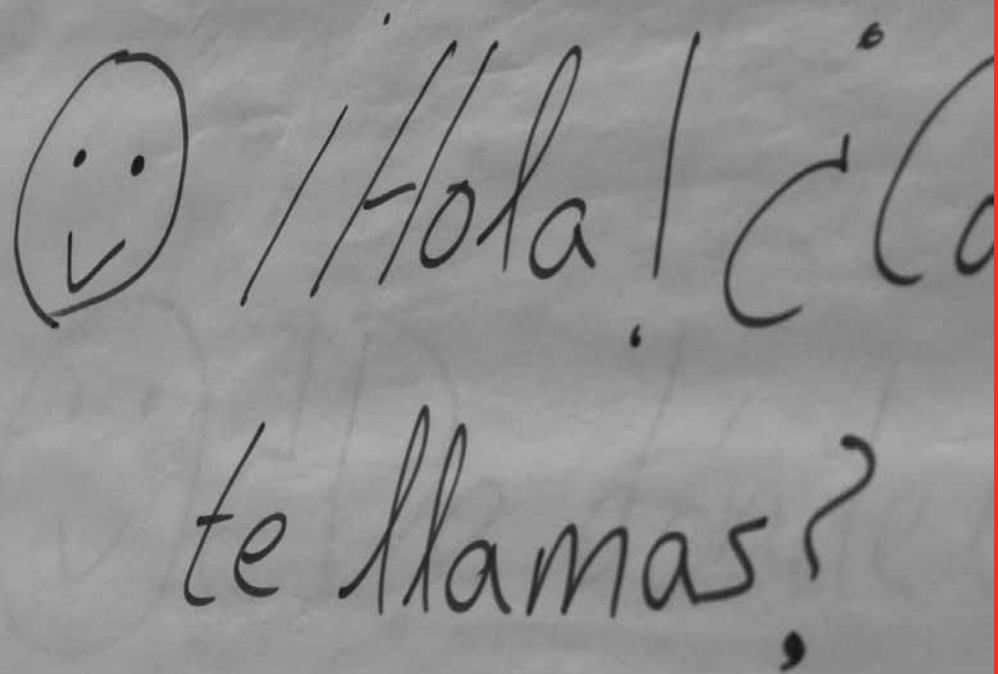 ¡Hola! ¿Co
te llamas?